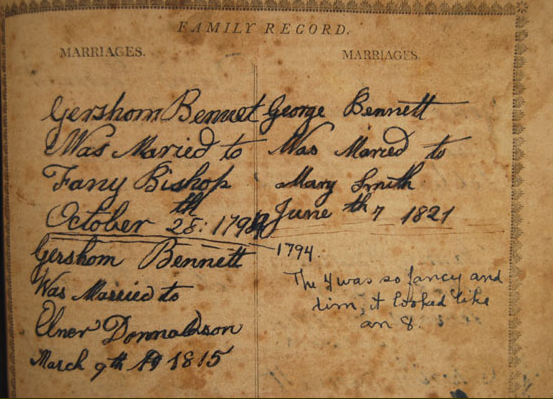 FAMILY RECORD.
MARRIAGES.
Gershom Bennet
Was Maried to
Fany Bishop
October 28th: 1794
Gershom Bennett
Was Married to
Elner Donnaldson
March 9th AD 1815
MARRIAGES.
George Bennett
Was Maried to
Mary Smith
June th 7 1821
1794.
The 4 was so fancy and
dim, it looked like
an 8.